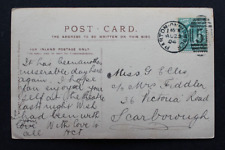 POST-CARD.
THE ADDRESS TO BE WRITTEN ON THIS SIDE
FOR INLAND POSTAGE ONLY
It has been another
miserable day here
again. I hope
you
self at the
last night Wish
I had been with
you With love to
all
Miss G Eles
c/o Mrs Fiddler
26 Victoria Road
Scarborough